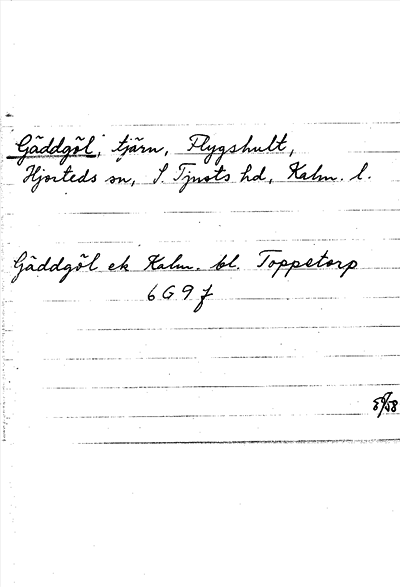 Gäddgöl, tjärn, Flygshult,
Hjorteds sn, S. Tjusts hd, Kalm. l.
Gäddgöl ek Kalm. bl. Toppetorp
6G9f